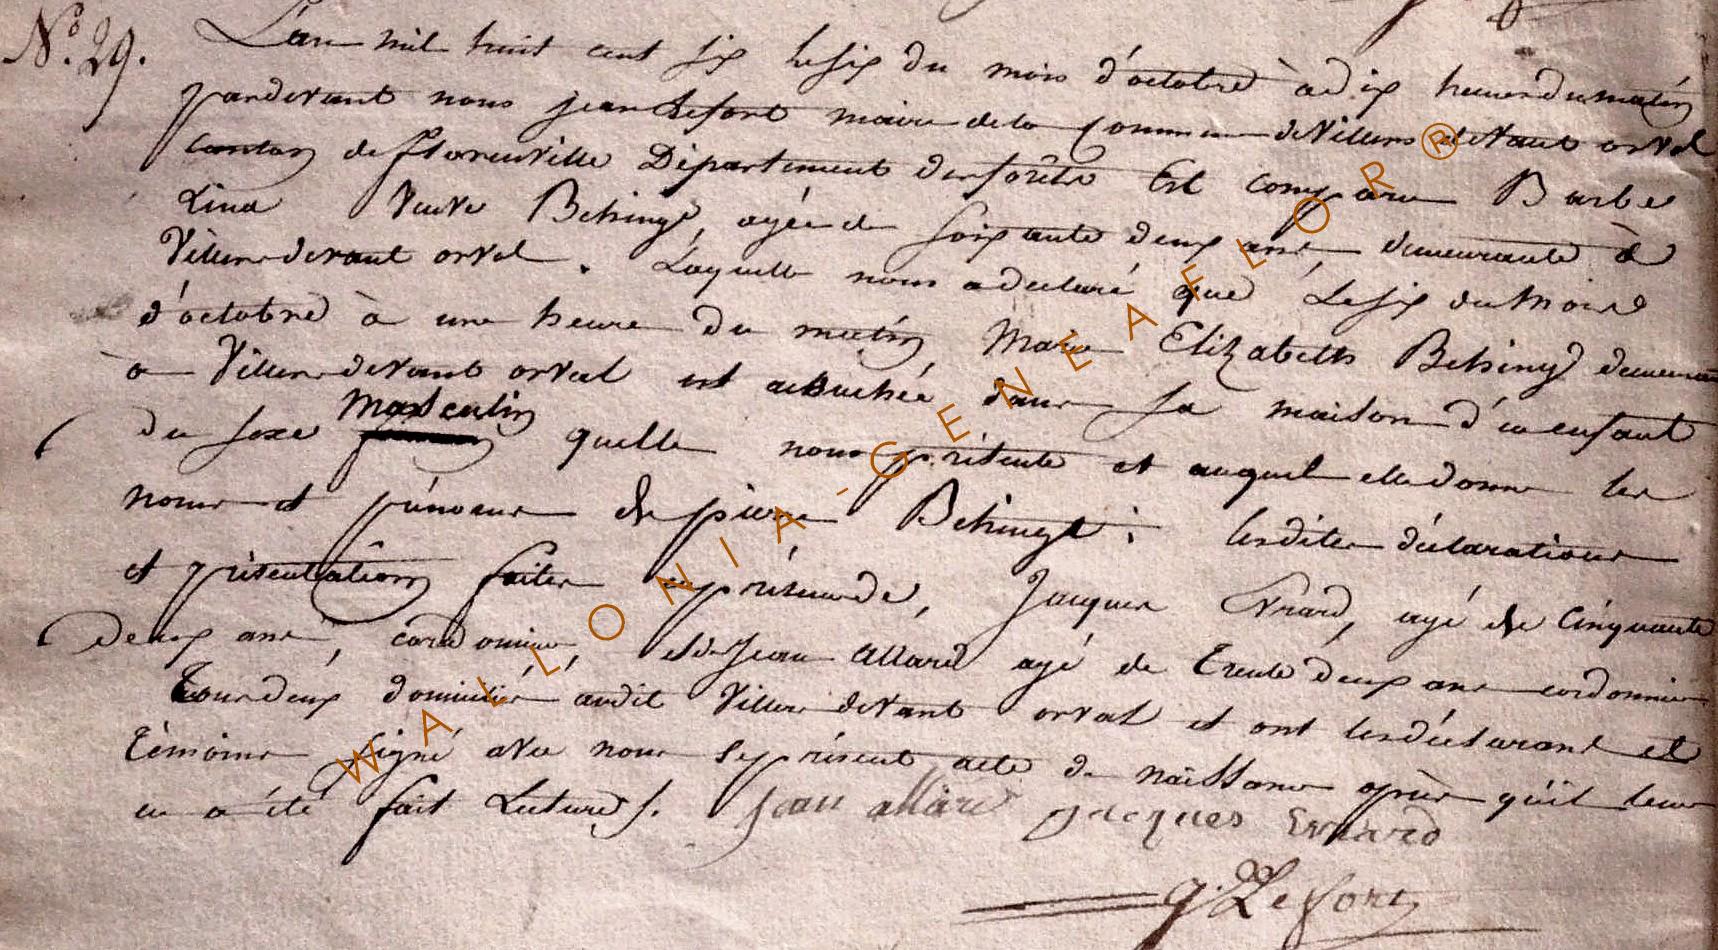 N.º 29.
L'an mil huit cent six le six du mois d'octobre à dix heures du matin
pardevant nous jean Lefort maire de la Commune de Villers devant orval
canton de florenville Département des forêts Est comparu Barbe
Lina Veuve Behing, agée de soixante deux ans, demeurante à
Villers devant orval. Laquelle nous a declaré que Le six du Mois
d'octobre à une heure du matin, Marie Elizabeth Behing
à Villers devant orval est accouchée dans sa maison d'un enfant
Masculin
du sexe quelle nous présente et auquel elle donne les
noms et prénoms de pierre Behing ; lesdites déclarations
et présentation faites en présence de, Jacques Evrard, agé de Cinquante
deux ans, cordonnier, et de Jean Allard agé de trente deux ans cordonnier
Tous deux domiciliés audit Villers devant orval et ont les déclarant et
témoins signé avec nous le présent acte de naissance après qu'il leur
en a été fait Lecture.
jean allard jacques Evrard
J. Lefort
WALLONIA-GENEAFLOR ®